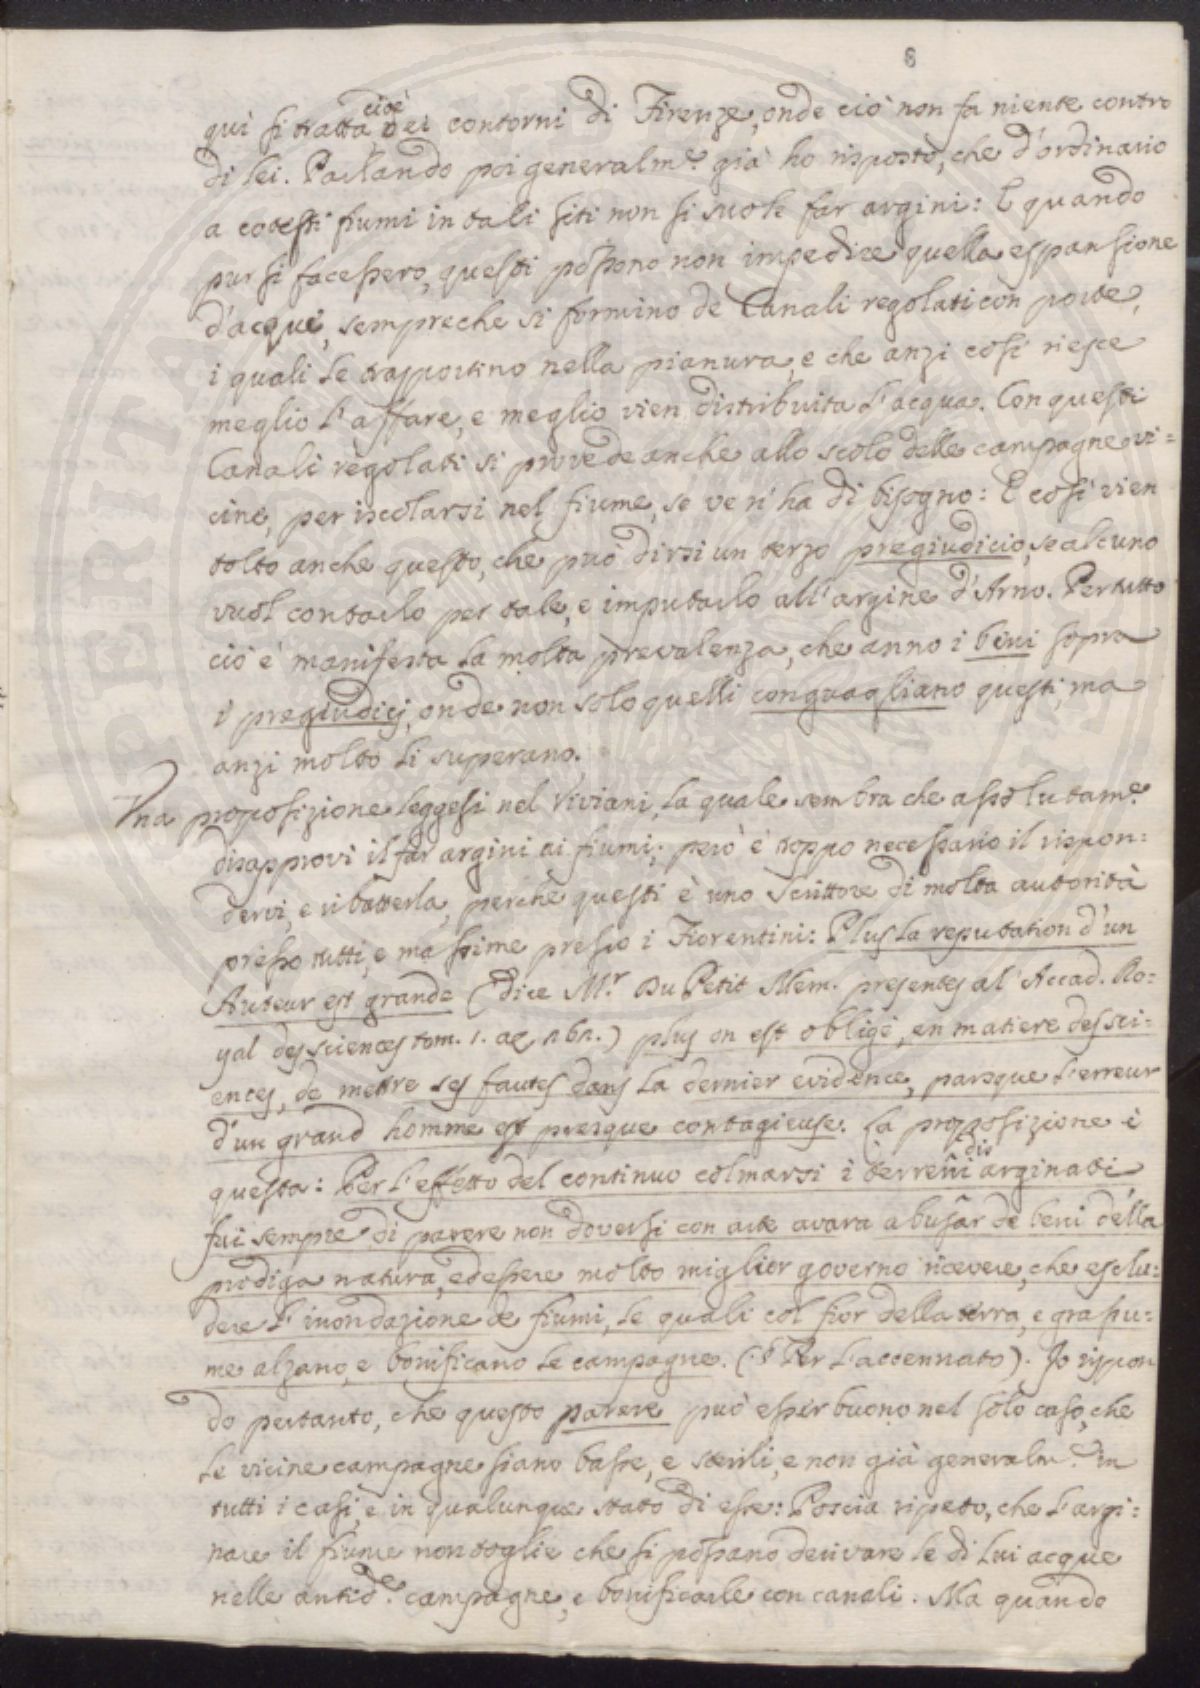 8
quì si tratta cioè dei contorni di Firenze, onde ciò non fa niente contro
di lei. Parlando poi generalm.e già ho risposto, che d'ordinario
a cotesti fiumi in tali siti non si suole far argini: E quando
pur si facessero, questi possono non impedire quella espansione
d'acque, sempreche si formino de Canali regolati con porte,
i quali le trasportino nella pianura, e che anzi così riesce
meglio l'affare, e meglio vien distribuita l'acqua. Con questi
Canali regolati si provede anche allo scolo delle campagne vi=
cine, per iscolarsi nel fiume, se ve n'ha di bisogno: E così vien
tolto anche questo, che può dirsi un terzo pregiudicio, se alcuno
vuol contarlo per tale, e imputarlo all'argine d'Arno. Per tutto
ciò è manifesta la molta prevalenza, che anno i beni sopra
i pregiudicj, onde non solo quelli conguagliano questi, ma
anzi molto li superano.
Una proposizione leggesi nel Viviani, la quale sembra che assolutam.e
disapprovi il far argini ai fiumi; però è troppo necessario il rispon:
dervi, e ribatterla, perche questi è uno Scrittore di molta autorità
presso tutti, e massime presso i Fiorentini: Plus la reputation d'un
Auteur est grande (dice M.r Du Petit Mem. presentes al'Accad. Ro:
yal des sciences tom. 1. ) plus on est obligè, en matiere des sci:
ences, de mettre ses fautes dans la dernier evidence, parsque l'erreur
d'un grand homme est presque contagieuse. La proposizione è
questa: Per l'effetto del continuo colmarsi i terreni disarginati
fui sempre di parere non doversi con arte avara abusar de beni della
prodiga natura, ed essere molto miglior governo ricevere, che esclu:
dere l'inondazione de fiumi, le quali col fior della terra, e grassu:
me alzano, e bonificano le campagne. (§ Per l'accennato). Io rispon
do pertanto, che questo parere può esser buono nel solo caso, che
le vicine campagne siano basse, e sterili, e non già generalm.e in
tutti i casi, e in qualunque stato di esse: Poscia ripeto, che l'argi:
nare il fiume non toglie che si possano derivare le di lui acque
nelle antid.e campagne, e bonificarle con canali. Ma quando